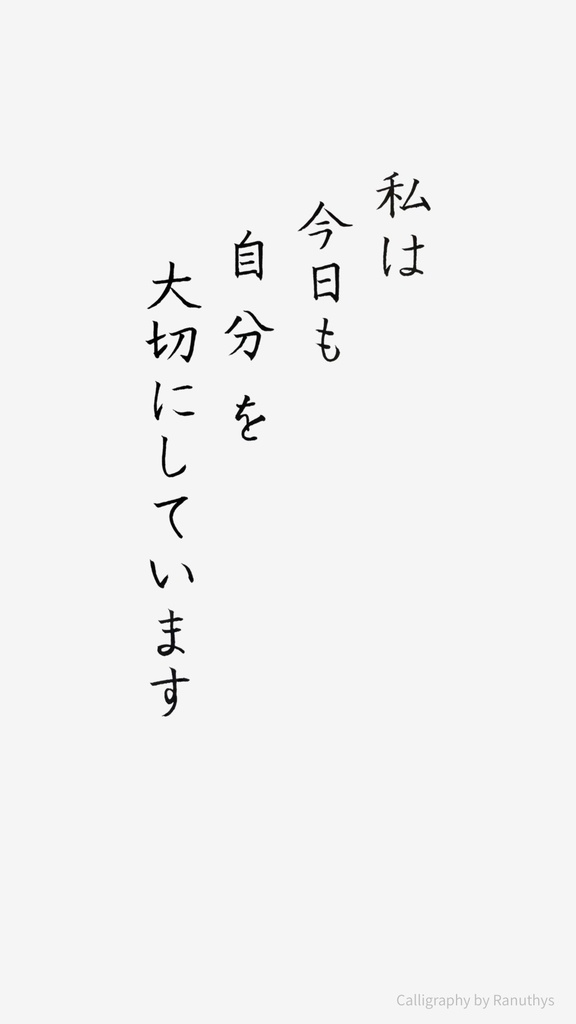 私は
今日も
自分を
大切にしています
Calligraphy by Ranuthys